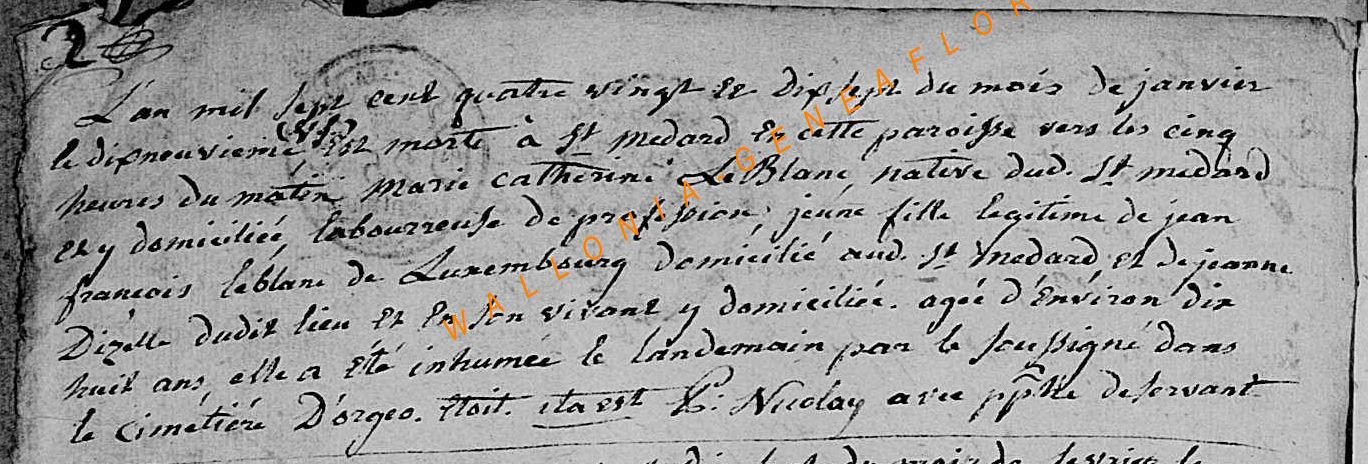 2
L'an mil sept cent quatre vingt et dixsept du mois de janvier
le dixneuvieme est morte à St medard en cette paroisse vers les cinq
heures du matin marie catherine LeBlanc native dud. St medard
et y domiciliée, labourreuse de profession, jeune fille legitime de jean
françois leblanc de Luxembourg domicilié aud. St medard, et de jeanne
Dizelle dudit lieu et en son vivant y domiciliée. agée d'environ dix
huit ans, elle a été inhumée le landemain par le soussigné dans
le cimetiére D'orgeo. étoit. ita est Nicolay deservant
WALLONIA GENEAFLOR